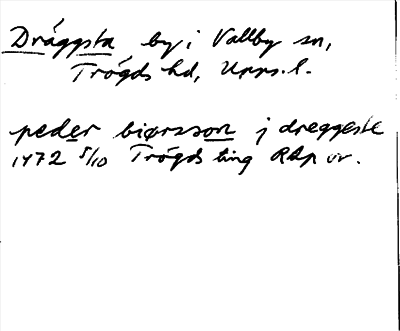 Dräggsta by i Vallby sn,
Trögds hd, Upps. l.
peder biørsson j dreggeste
1472 5/10 Trögds ting RAp or.